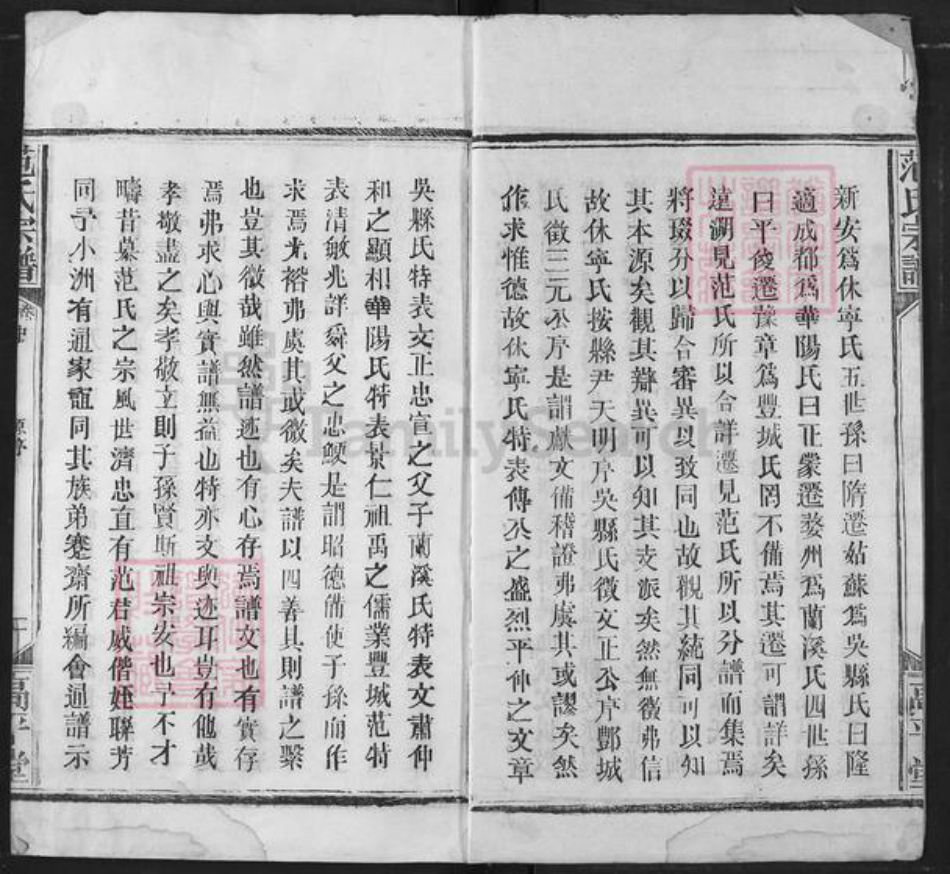 新安爲休寧氏五世孫曰隋遷姑蘇爲吳縣氏曰隆
適成都爲華陽氏曰正蒙遷婺州爲蘭溪氏四世孫
曰平俊遷豫章爲豐城氏罔不備焉其遷可謂詳矣
遠溯見范氏所以合詳遷見范氏所以分譜而集焉
將掇分以歸合審異以致同也故觀其統同可以知
其本源矣觀其辯異可以知其支派矣然無徵弗信
故休寧氏按縣尹天明序吳縣氏徵文正公序酆城
氏徵三元公序是謂獻文備稽證弗虞其或謬矣然
作求惟德故休寧氏特表傳公之盛烈平仲之文章
吳縣氏特表文正忠宣之父子蘭溪氏特表文肅仲
和之顯相華陽氏特表景仁祖禹之儒業豐城范特
表清敏兆詳舜父之忠鯁是謂昭德備使子孫而作
求焉光裕弗虞其或微矣夫譜以四善具則譜之繫
也豈其微哉雖然譜迹也有心存焉譜文也有實存
焉弗求心與實譜無益也特亦文與迹耳豈有他哉
孝敬盡之矣孝敬立則子孫賢斯祖宗安也予不才
疇昔慕范氏之宗風世濟忠直有范君威偕姪聯芳
同予小洲有通家誼同其族弟蹇齋所編會通譜示
范氏宗譜
高平堂
范氏宗譜
卷中
原序
高平堂
FamilySearch